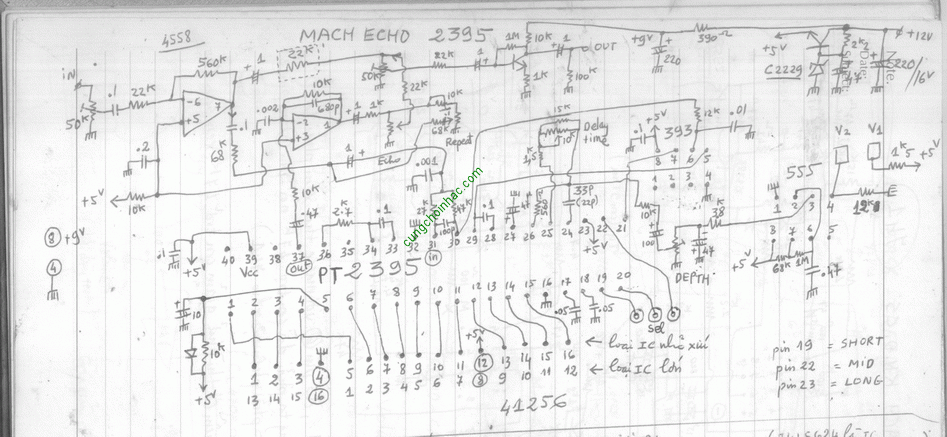 MACH ECHO 2395
4558
iN
50K
.1
22K
560K
-6
+5
7
.1
68K
.2
+5V
10K
1
22K
10K
680p
.002
-2
+3
1
1
1K
Echo
50K
22K
22K
1
1M
10K
1K
1
OUT
100K
10K
68K
Repeat
+9V
220
390Ω
+5V
C2229
2K2
47
220/16V
+12V
15K
10K
Delay time
1.5K
33p
(22p)
.1
+5V
393
12K
.01
8 7 6 5
1 2 3 4
555
V2
V1
1K5
+5V
12K
E
10K
100
DEPTH
.47
38K
1 2 3 4
8 7 6 5
+5V
68K
1M
.47
8 +9V
4
.1
+5V
40 39 38 37 36 35 34 33 32 31 30 29 28 27 26 25 24 23 22 21
Vcc
out
in
10K
.47
2.7K
.1
.001
.1
.47
+5V
PT 2395
cungchoinhac.com
10
10K
+5V
1 2 3 4 5 6 7 8 9 10 11 12 13 14 15 16 17 18 19 20
.05
.05
Sel
+5V
1 2 3 4 5 6 7 8 9 10 11 12 13 14 15 16 ← loại IC nhỏ xíu
13 14 15 16 1 2 3 4 5 6 7 8 9 10 11 12 ← loại IC lớn
41256
pin 19 = SHORT
pin 22 = MiD
pin 23 = LONG